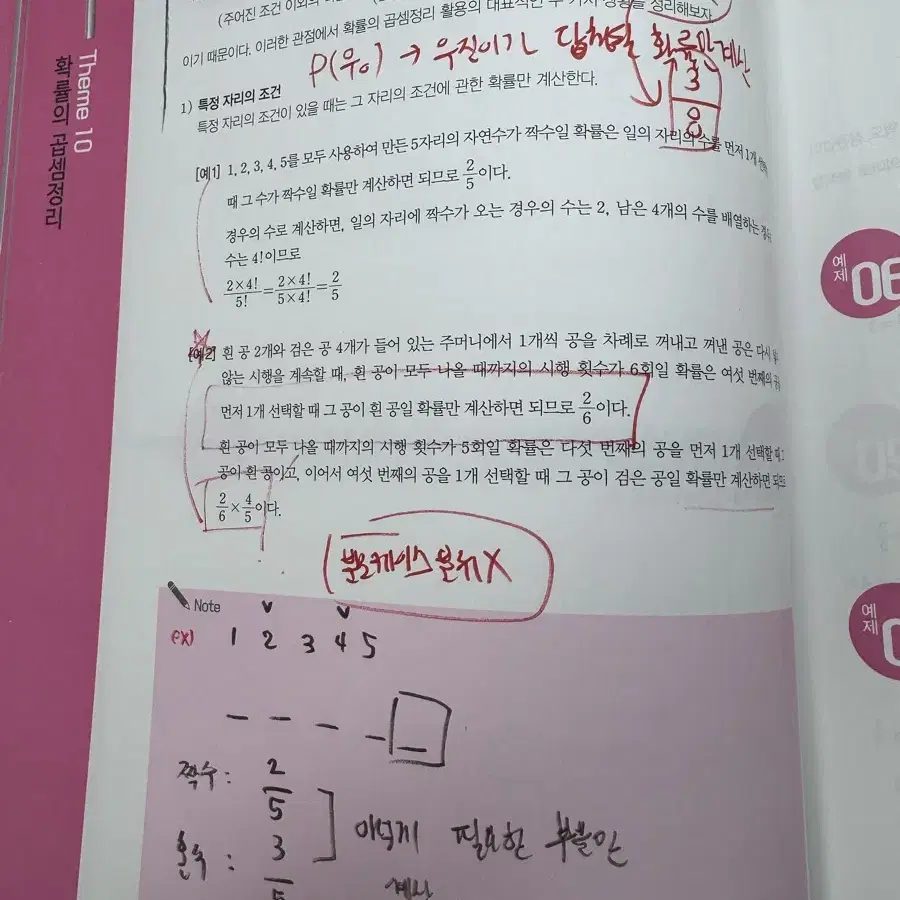 Theme 10
확률의 곱셈정리
(주어진 조건 이외의
정리해보자
이기 때문이다. 이러한 관점에서 확률의 곱셈정리 활용의 대표적인 두 가지 상황을
P(우o) → 우진이가 답칠 확률만 계산
3
8
1) 특정 자리의 조건
특정 자리의 조건이 있을 때는 그 자리의 조건에 관한 확률만 계산한다.
[예1] 1, 2, 3, 4, 5를 모두 사용하여 만든 5자리의 자연수가 짝수일 확률은 일의 자리의 수를 먼저 1개
때 그 수가 짝수일 확률만 계산하면 되므로 2/5이다.
경우의 수로 계산하면, 일의 자리에 짝수가 오는 경우의 수는 2, 남은 4개의 수를 배열하는 경우
수는 4!이므로
2×4!/5! = 2×4!/5×4! = 2/5
[예2] 흰 공 2개와 검은 공 4개가 들어 있는 주머니에서 1개씩 공을 차례로 꺼내고 꺼낸 공은 다시
않는 시행을 계속할 때, 흰 공이 모두 나올 때까지의 시행 횟수가 6회일 확률은 여섯 번째의 공
먼저 1개 선택할 때 그 공이 흰 공일 확률만 계산하면 되므로 2/6이다.
흰 공이 모두 나올 때까지의 시행 횟수가 5회일 확률은 다섯 번째의 공을 먼저 1개 선택할 때 그
공이 흰 공이고, 이어서 여섯 번째의 공을 1개 선택할 때 그 공이 검은 공일 확률만 계산하면 되므로
2/6 × 4/5이다.
분류 X
Note
ex) 1 2 3 4 5
짝수 : 2/5
홀수 : 3/5
이렇게 필요한 부분만
계산
예제
06
예제